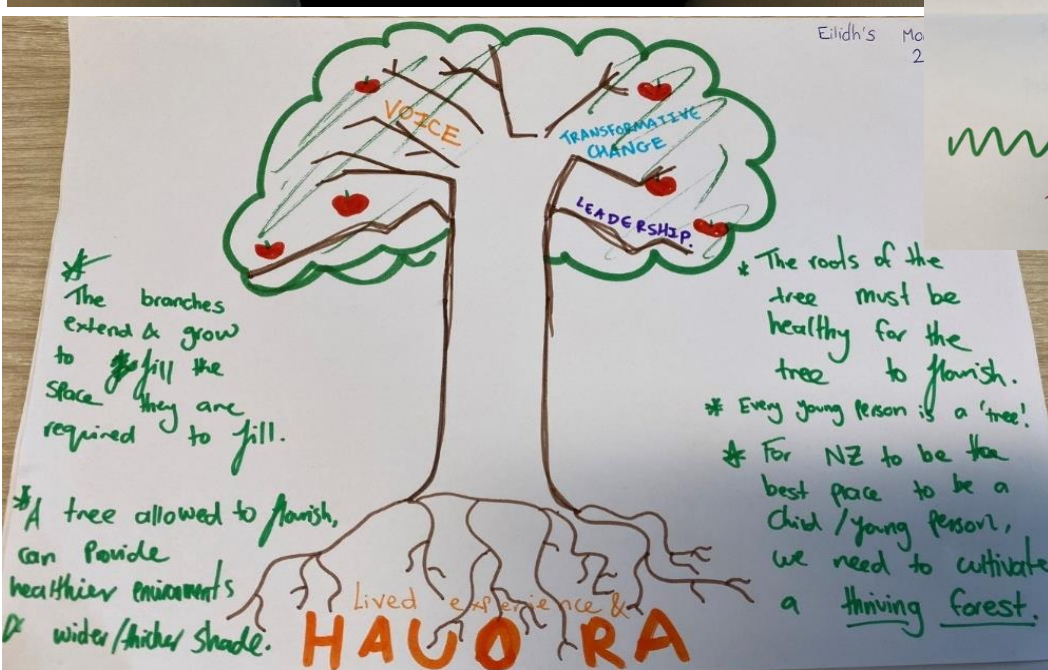 Eilidh's
2
VOICE
TRANSFORMATIVE
CHANGE
LEADERSHIP.
* The branches
extend & grow
to fill the
space they are
required to fill.
* A tree allowed to flourish,
can Provide
healthier enironments
& wider/thicker shade.
* The roots of the
tree must be
healthy for the
tree to flourish.
* Every young person is a 'tree'!
* For NZ to be the
best place to be a
Child/young person,
we need to cultivate
a thriving forest.
Lived experience &
HAUORA